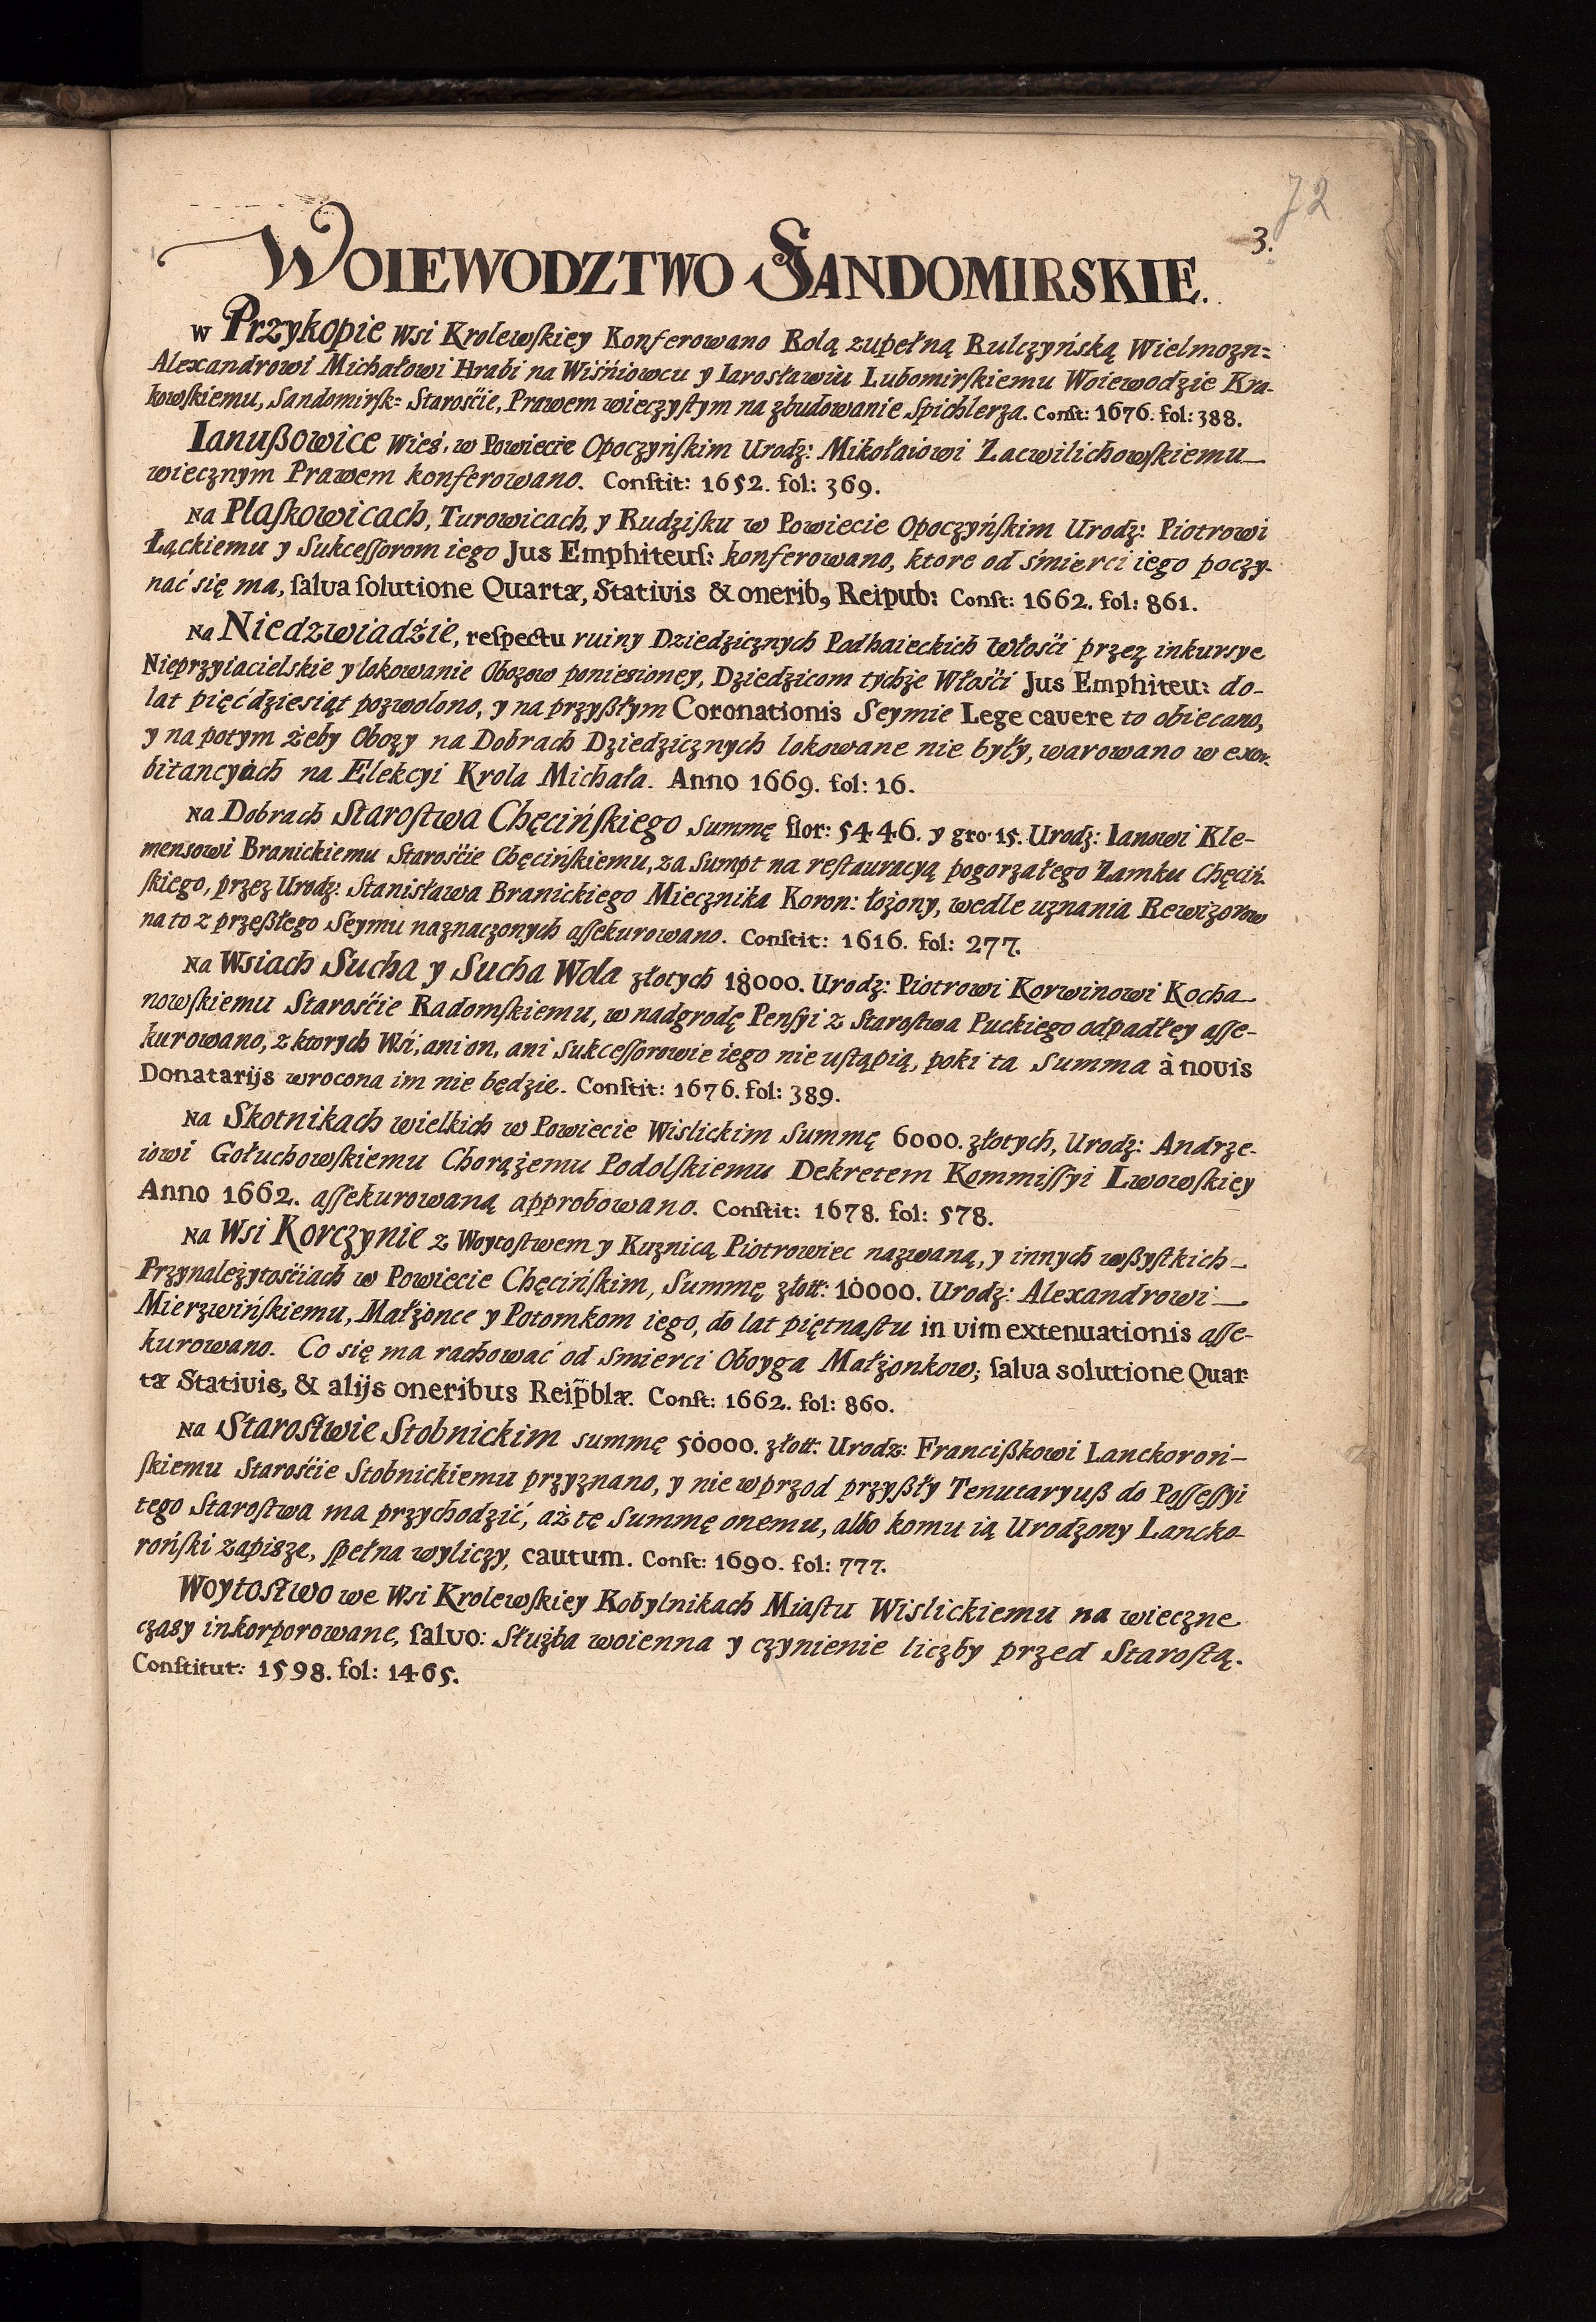 72
3.
WOIEWODZTWO SANDOMIRSKIE.
w Przykopie Wsi Krolewſkiey Konferowano Rolą zupełną Rulczyńską Wielmozn=
Alexandrowi Michałowi Hrabi na Wiśniowcu y Iarosławiu Lubomirſkiemu Woiewodzie Kra-
kowſkiemu, Sandomirſk= Starośćie, Prawem wieczyſtym na zbudowanie Spichlerza. Conſt: 1676. fol: 388.
Ianußowice Wieś, w Powiecie Opoczyńſkim Urodz: Mikołaiowi Zacwilichowſkiemu
wiecznym Prawem konferowano. Conſtit: 1652. fol: 369.
Na Plaſkowicach, Turowicach, y Rudziſku w Powiecie Opoczyńſkim Urodz: Piotrowi
Łąckiemu y Sukceſſorom iego Jus Emphiteuſ: konferowano, ktore od śmierci iego poczy-
nać się ma, ſalva ſolutione Quartæ, Stativis & onerib, Reipub: Conſt: 1662. fol: 861.
Na Niedzwiadźie, reſpectu ruiny Dziedzicznych Podhaieckich Włośći przez inkursye
Nieprzyiacielskie y lokowanie Obozow poniesioney, Dziedzicom tychże Włośći Jus Emphiteu: do-
lat pięćdziesiąt pozwolono, y na przyßłym Coronationis Seymie Lege cavere to obiecano,
y na potym żeby Obozy na Dobrach Dziedzicznych lokowane nie były, warowano w exor-
bitancyach na Elekcyi Krola Michała. Anno 1669. fol: 16.
Na Dobrach Staroſtwa Chęcińſkiego summę flor: 5446. y gro. 15. Urodz: Ianowi Kle-
mensowi Branickiemu Starośćie Chęcińſkiemu, za Sumpt na reſtauracyą pogorzałego Zamku Chęciń-
ſkiego, przez Urodz: Stanisława Branickiego Miecznika Koron: łożony, wedle uznania Rewizorow
na to z przeßłego Seymu naznaczonych aſſekurowano. Conſtit: 1616. fol: 277.
Na Wsiach Sucha y Sucha Wola złotych 18000. Urodz: Piotrowi Korwinowi Kocha
nowſkiemu Starośćie Radomſkiemu, w nadgrodę Penſyi z Staroſtwa Puckiego odpadłey aſſe-
kurowano, z ktorych Wśi, ani on, ani sukceſſorowie iego nie uſtąpią, poki ta summa à novis
Donatarijs wrocona im nie będzie. Conſtit: 1676. fol: 389.
Na Skotnikach wielkich w Powiecie Wislickim Summę 6000. złotych, Urodz: Andrze-
iowi Gołuchowſkiemu Chorążemu Podolſkiemu Dekretem Kommiſſyi Lwowſkiey
Anno 1662. aſſekurowaną approbowano. Conſtit: 1678. fol: 578.
Na Wsi Korczynie z Woytoſtwem y Kuznicą Piotrowiec nazwaną, y innych wßyſtkich
Przynależytośćiach w Powiecie Chęcińſkim, Summę złott: 10000. Urodz: Alexandrowi
Mierzwińſkiemu, Małżonce y Potomkom iego, do lat piętnaſtu in vim extenuationis aſſe-
kurowano. Co się ma rachować od smierci Oboyga Małżonkow; ſalva solutione Quar
tæ Stativis, & alijs oneribus Reipblæ. Conſt: 1662. fol: 860.
Na Staroſtwie Stobnickim summę 50000. złott: Urodz: Francißkowi Lanckoroń-
ſkiemu Starośćie Stobnickiemu przyznano, y nie wprzod przyßły Tenutaryuß do Poſſeſſyi
tego Staroſtwa ma przychodzić, aż tę Summę onemu, albo komu ią Urodzony Lancko-
rońſki zapisze, ſpełna wyliczy, cautum. Conſt: 1690. fol: 777.
Woytoſtwo we Wsi Krolewſkiey Kobylnikach Miaſtu Wislickiemu na wieczne
czasy inkorporowane, ſalvo: Służba woienna y czynienie liczby przed Staroſtą.
Conſtitut: 1598. fol: 1465.